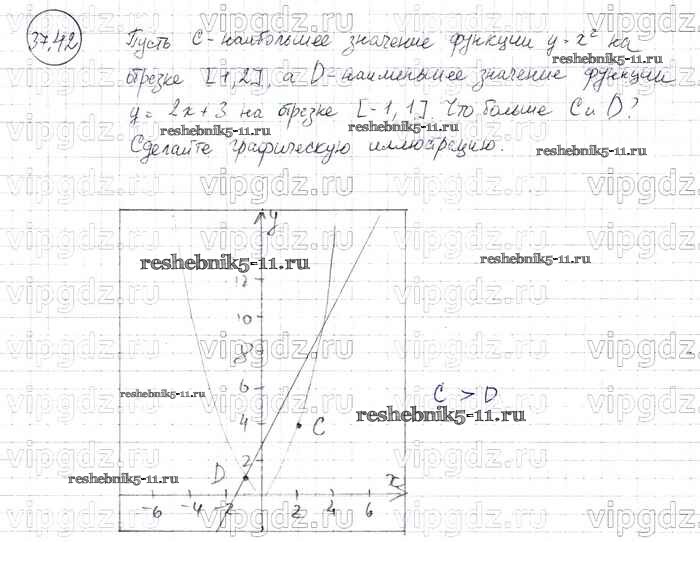 37.42
Пусть C-наибольшее значение функции y=x² на
отрезке [1,2], а D-наименьшее значение функции
y=2x+3 на отрезке [-1,1]. Что больше C и D?
Сделайте графическую иллюстрацию.
y
12
10
8
6
4
2
-6 -4 -2 2 4 6 x
D
C
C > D
reshebnik5-11.ru
vipgdz.ru